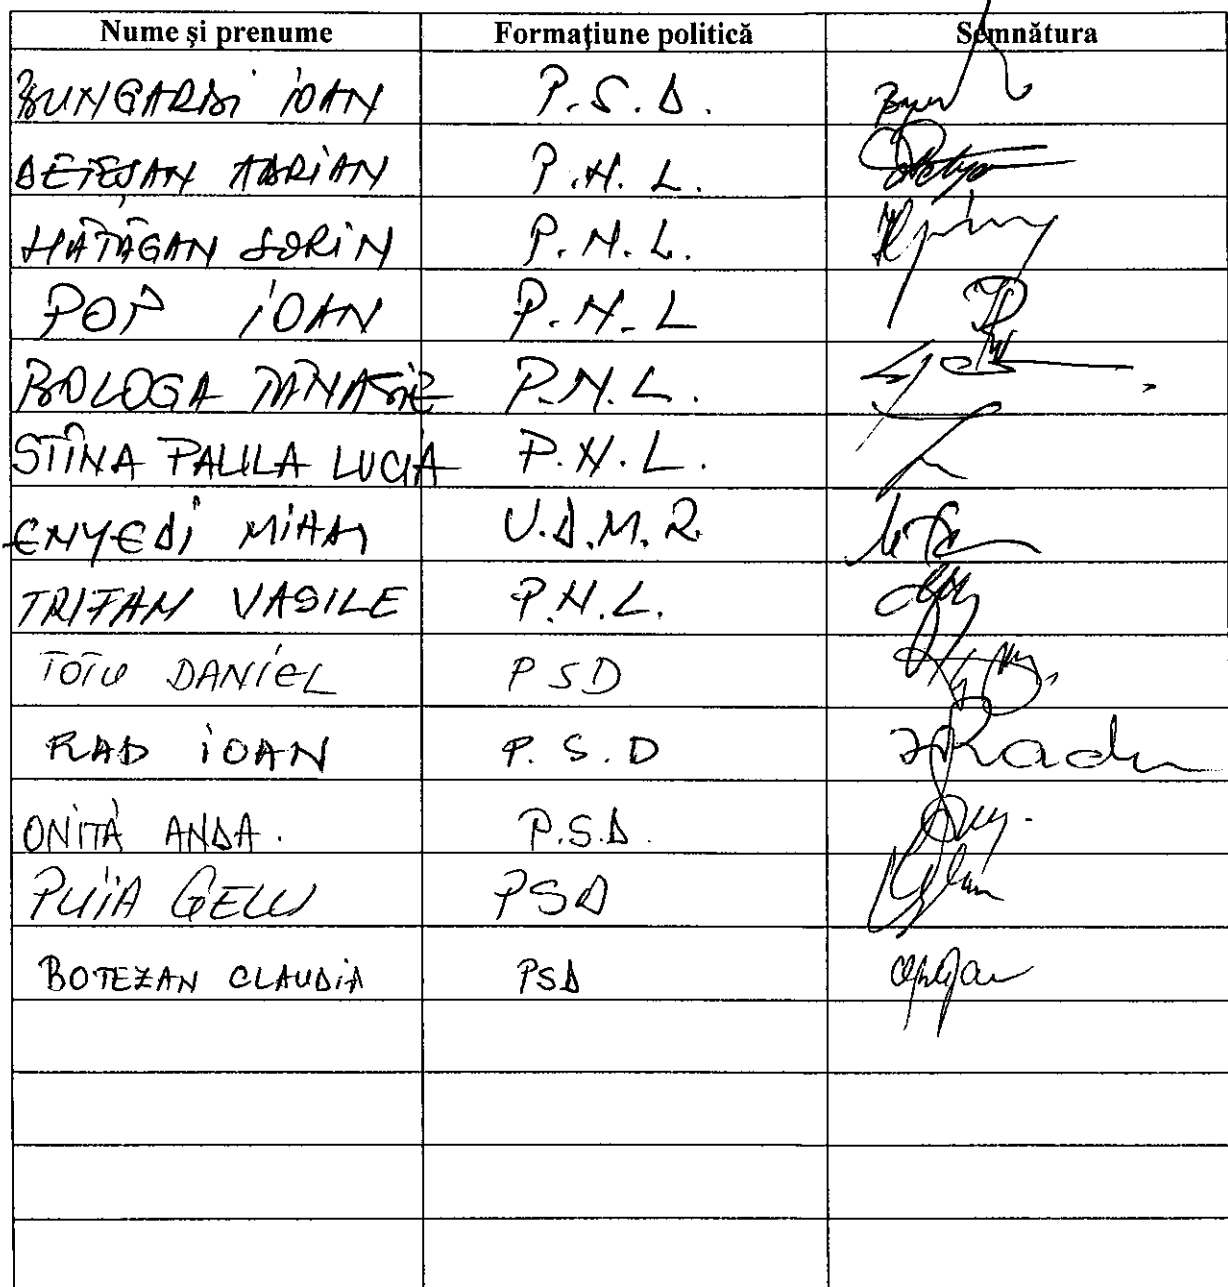 Nume şi prenume Formaţiune politică Semnătura
BUNGARDI IOAN P.S.D.
DETEŞAN ADRIAN P.N.L.
HĂTĂGAN SORIN P.N.L.
POP IOAN P.N.L
BOLOGA TĂNASIE P.N.L.
STÎNA PAULA LUCIA P.N.L.
ENYEDI MIHAI U.D.M.R.
TRIFAN VASILE P.N.L.
TOTU DANIEL PSD
RAD IOAN P.S.D
ONITĂ ANDA. P.S.D.
PUIA GELU PSD
BOTEZAN CLAUDIA PSD